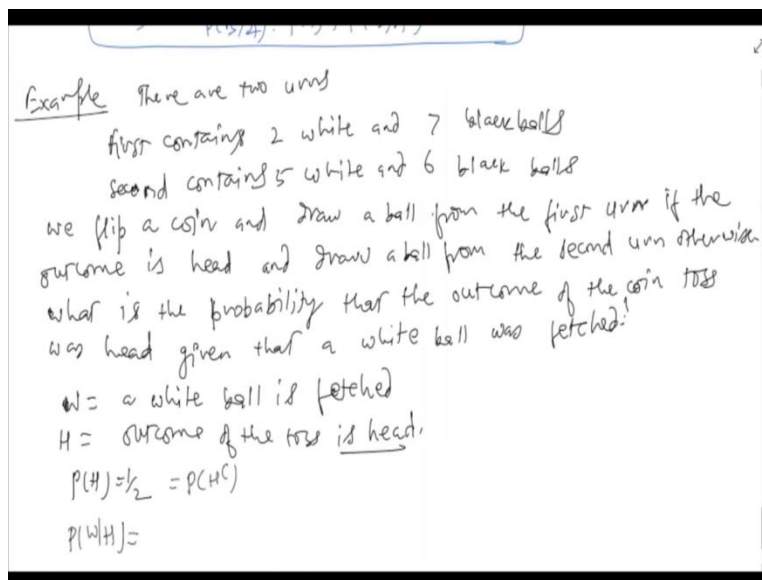 Example There are two urns
first contains 2 white and 7 black balls
second contains 5 white and 6 black balls
we flip a coin and draw a ball from the first urn if the
outcome is head and draw a ball from the second urn otherwise
what is the probability that the outcome of the coin toss
was head given that a white ball was fetched?
W = a white ball is fetched
H = outcome of the toss is head.
P(H) = 1/2 = P(H^C)
P(W|H) =